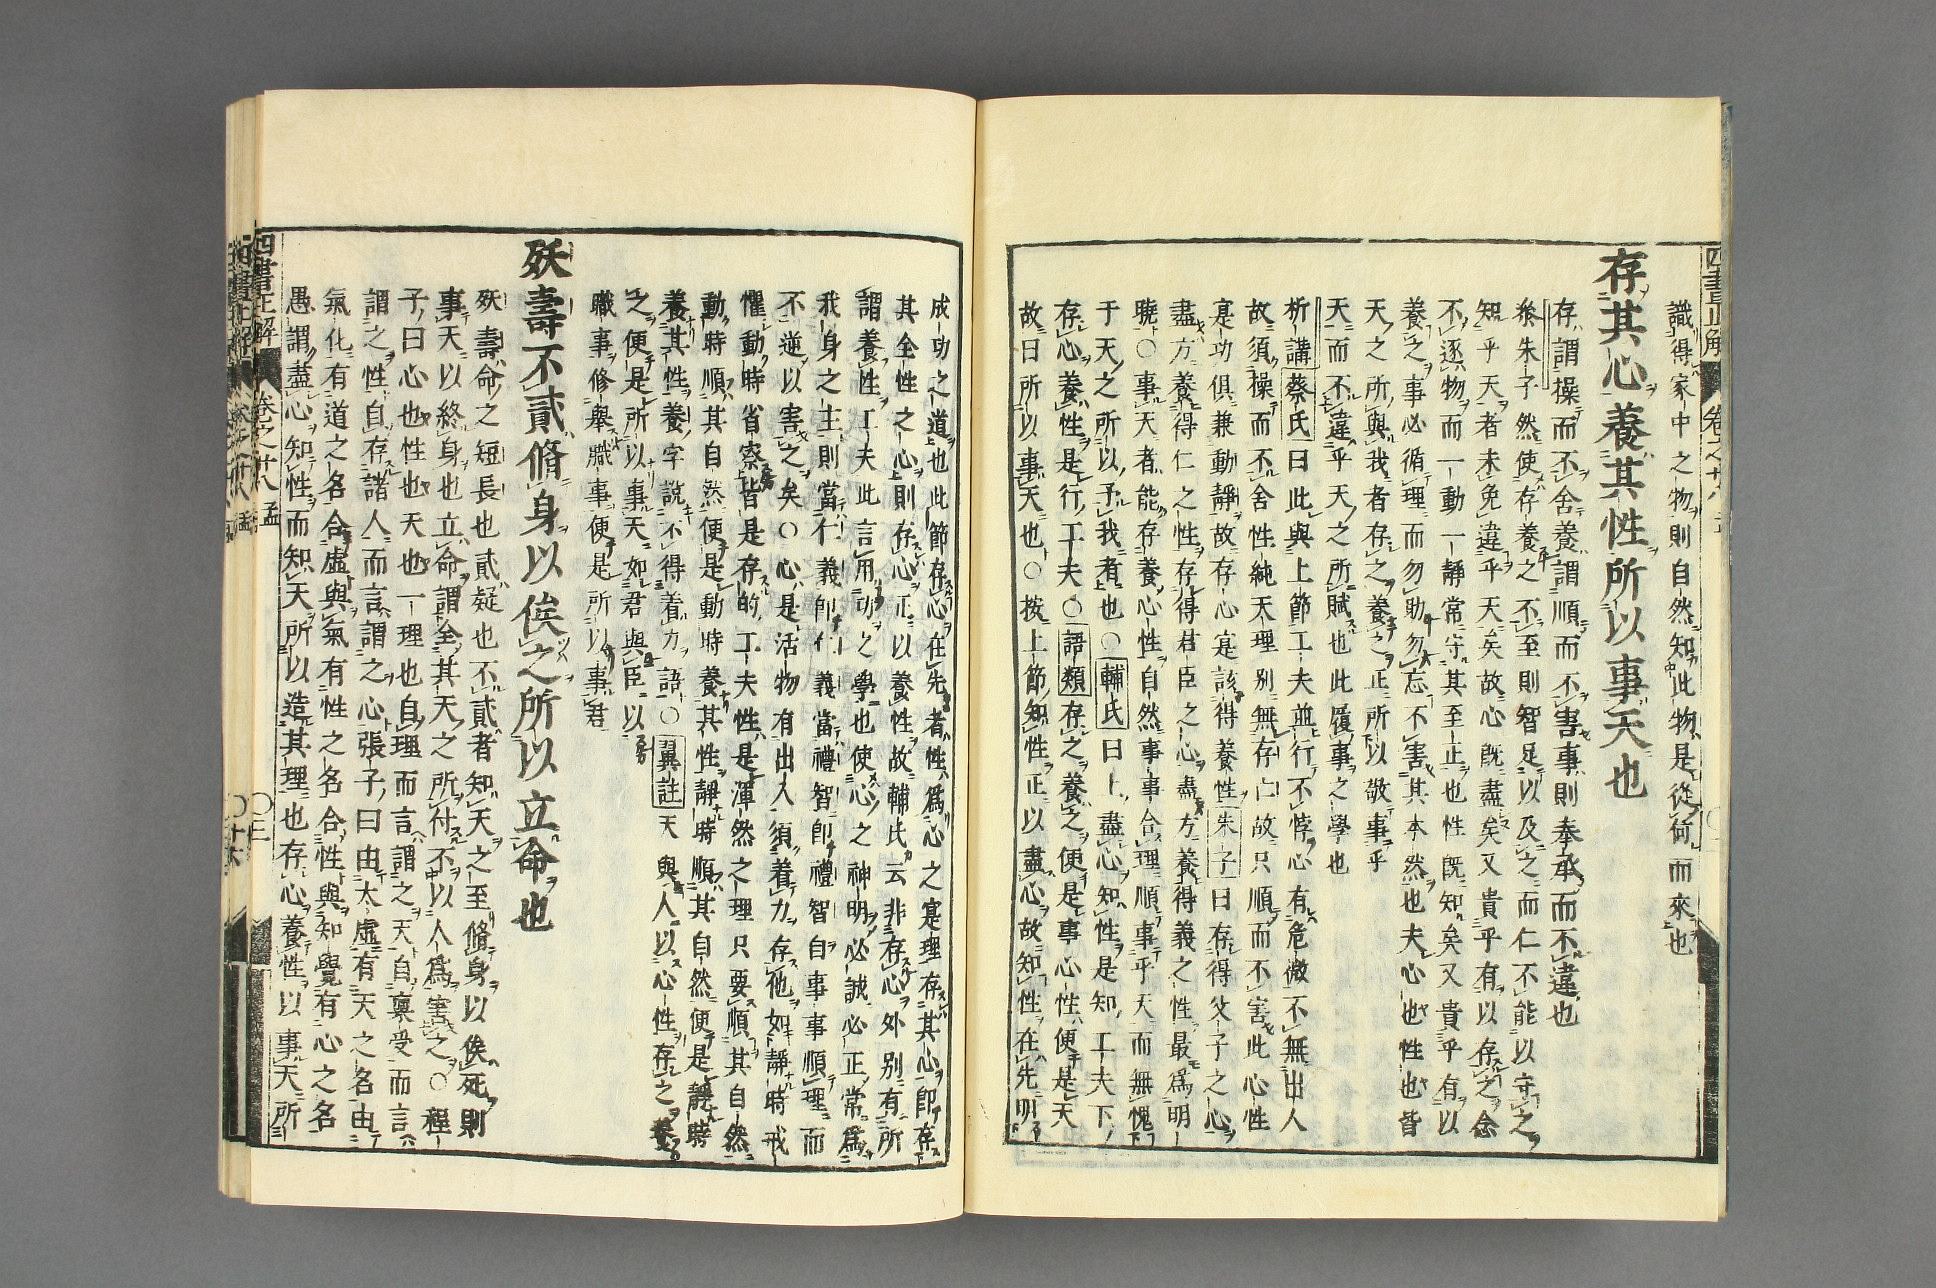 識得家中之物則自然知此物是從何而來也
存其心養其性所以事天也
存謂操而不舍養謂順而不害事則奉承而不違也
叅朱子然使存養之不至則智足以及之而仁不能以守之
知乎天者未免違乎天矣故心既盡矣又貴乎有以存之念
不逐物而一動一靜常守其至止也性既知矣又貴乎有以
養之事必循理而勿助勿忘不害其本然也夫心也性也皆
天之所與我者存之養之正所以敬事乎
天而不違乎天之所賦也此履事之學也
析講蔡氏曰此與上節工夫並行不悖心有危微不無出入
故須操而不舍性純天理别無存亡故只順而不害此心性
寔功俱兼動靜故存心寔該得養性朱子曰存得父子之心
盡方養得仁之性存得君臣之心盡方養得義之性最爲明
曉○事天者能存養心性自然事事合理順事乎天而無愧
于天之所以予我者也○輔氏曰上盡心知性是知工夫下
存心養性是行工夫○語類存之養之便是事心性便是天
故曰所以事天也○按上節知性正以盡心故知性在先明
成功之道也此節存心在先者性爲心之寔理存其心即存
其全性之心則存心正以養性故輔氏云非存心外别有所
謂養性工夫此言用功之學也使心之神明必誠必正常爲
我身之主則當仁義即仁義當禮智即禮智自事事順理而
不逆以害之矣○心是活物有出入須着力存他如靜時戒
懼動時省察皆是存的工夫性是渾然之理只要順其自然
動時順其自然便是動時養其性靜時順其自然便是靜時
養其性養字說不得着力語○翼註天與人以心性存之養
之便是所以事天如君與臣以
職事修舉職事便是所以事君
殀壽不貳脩身以俟之所以立命也
殀壽命之短長也貳疑也不貳者知天之至脩身以俟死則
事天以終身也立命謂全其天之所付不以人爲害之○程
子曰心也性也天也一理也自理而言謂之天自稟受而言
謂之性自存諸人而言謂之心張子曰由太虛有天之名由
氣化有道之名合虛與氣有性之名合性與知覺有心之名
愚謂盡心知性而知天所以造其理也存心養性以事天所
四書正解 卷之廿八 孟